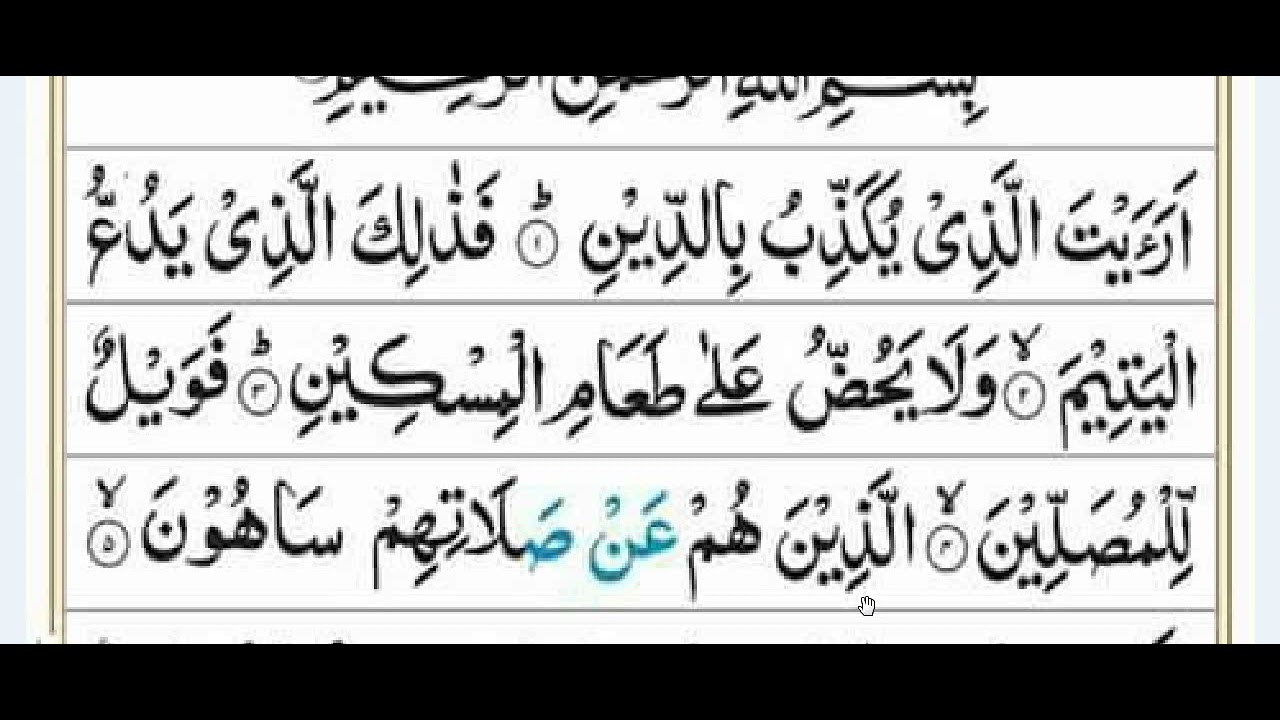 بِسْمِ اللهِ الرَّحْمٰنِ الرَّحِيْمِ
اَرَءَيْتَ الَّذِىْ يُكَذِّبُ بِالدِّيْنِ ؕ ﴿۱﴾ فَذٰلِكَ الَّذِىْ يَدُعُّ
الْيَتِيْمَ ۙ ﴿۲﴾ وَلَا يَحُضُّ عَلٰى طَعَامِ الْمِسْكِيْنِ ؕ ﴿۳﴾ فَوَيْلٌ
لِّلْمُصَلِّيْنَ ۙ ﴿۴﴾ الَّذِيْنَ هُمْ عَنْ صَلَاتِهِمْ سَاهُوْنَ ۙ ﴿۵﴾